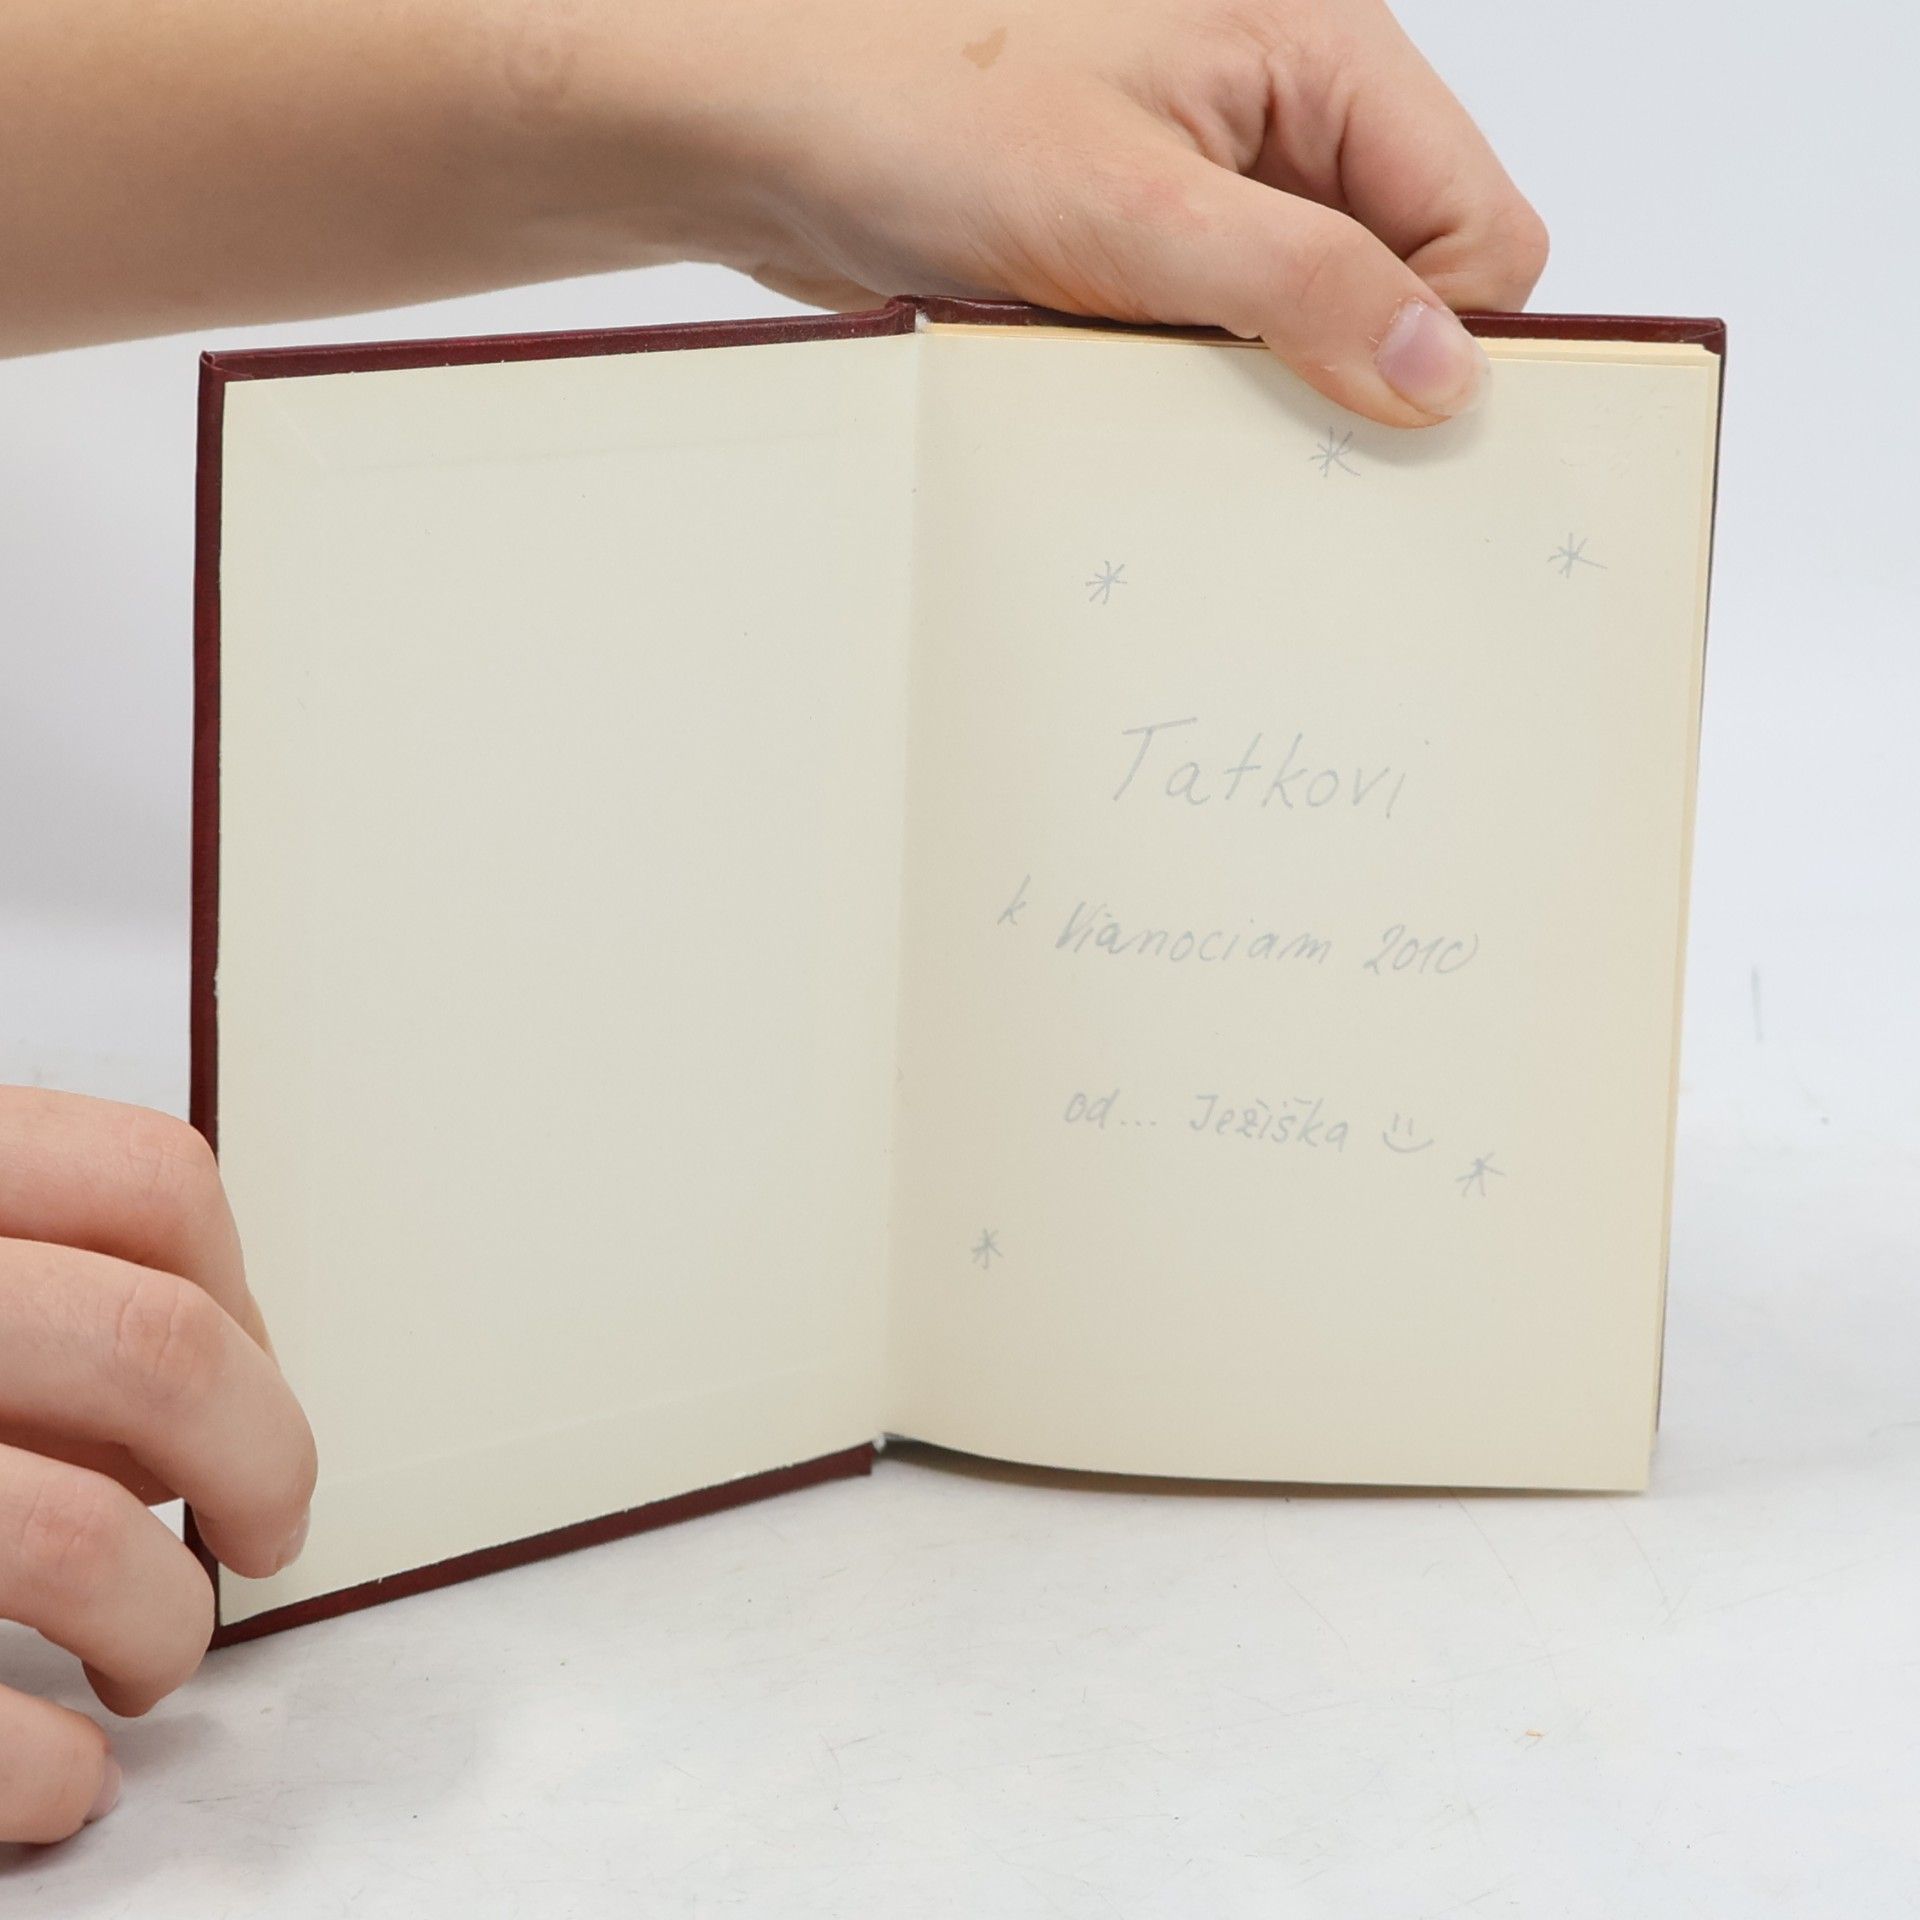 Tatkovi
k Vianociam 2010
od... Ježiška